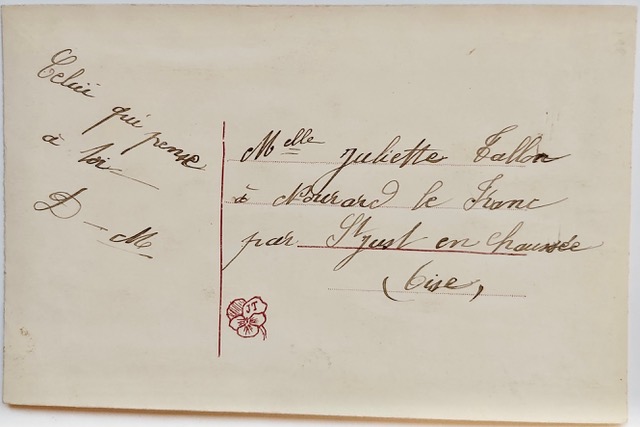 Celui
qui pense
à toi
D - M
Melle Juliette Tallon
à Nourard le Franc
par St Just en Chaussée
(Oise)
JT